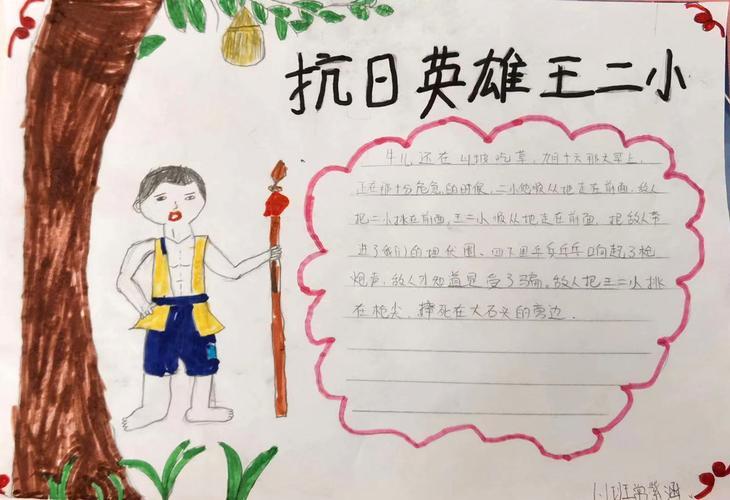 抗日英雄王二小
牛儿还在山坡吃草,九月十六那天早上,
正在那十分危急的时候,二小他顺从地走在前面,敌人
把二小挑在前面,王二小顺从地走在前面,把敌人带
进了我们的埋伏圈、四下里乒乒乓乓响起了枪
炮声,敌人才知道是受了骗,敌人把王二小挑
在枪尖,摔死在大石头的旁边.
1.1班